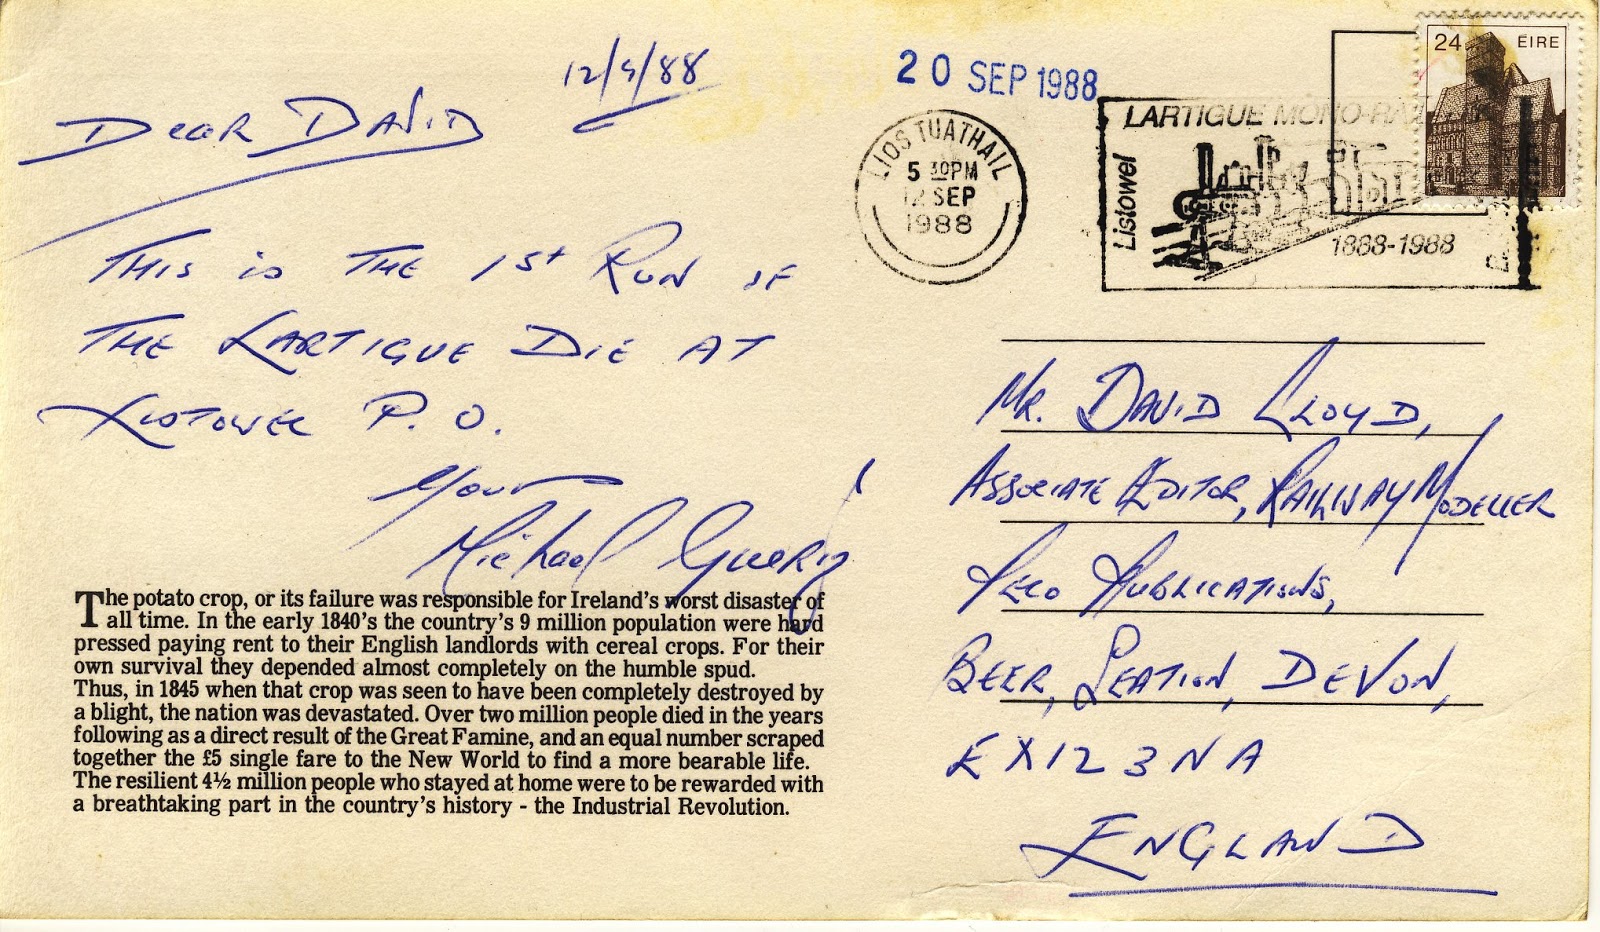 12/9/88
Dear David
This is the 1st Run of
the Lartigue Die at
Listowel P.O.
Your
Michael Guerin
The potato crop, or its failure was responsible for Ireland's worst disaster of
all time. In the early 1840's the country's 9 million population were hard
pressed paying rent to their English landlords with cereal crops. For their
own survival they depended almost completely on the humble spud.
Thus, in 1845 when that crop was seen to have been completely destroyed by
a blight, the nation was devastated. Over two million people died in the years
following as a direct result of the Great Famine, and an equal number scraped
together the £5 single fare to the New World to find a more bearable life.
The resilient 4½ million people who stayed at home were to be rewarded with
a breathtaking part in the country's history - the Industrial Revolution.
20 SEP 1988
LIOS TUATHAIL
5 30PM
12 SEP
1988
LARTIGUE MONO-RAI
Listowel
1888-1988
24 EIRE
Mr. David Lloyd,
Associate Editor, Railway Modeller
Peco Publications,
Beer, Seaton, Devon,
EX12 3NA
England